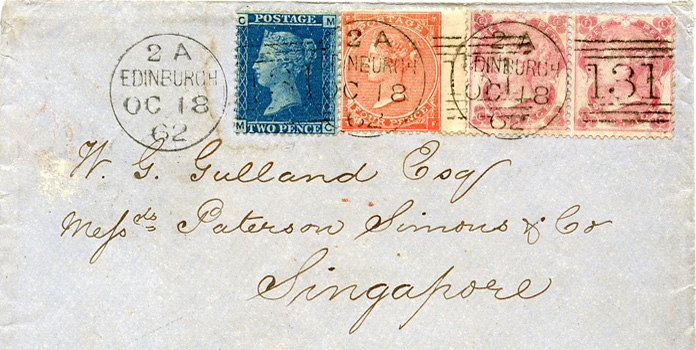 C M
POSTAGE
TWO PENCE
M C
POSTAGE
FOUR PENCE
2 A
EDINBURGH
OC 18
62
2 A
EDINBURGH
OC 18
62
2 A
EDINBURGH
OC 18
62
131
W. G. Gulland Esq
Messrs Paterson Simons & Co
Singapore